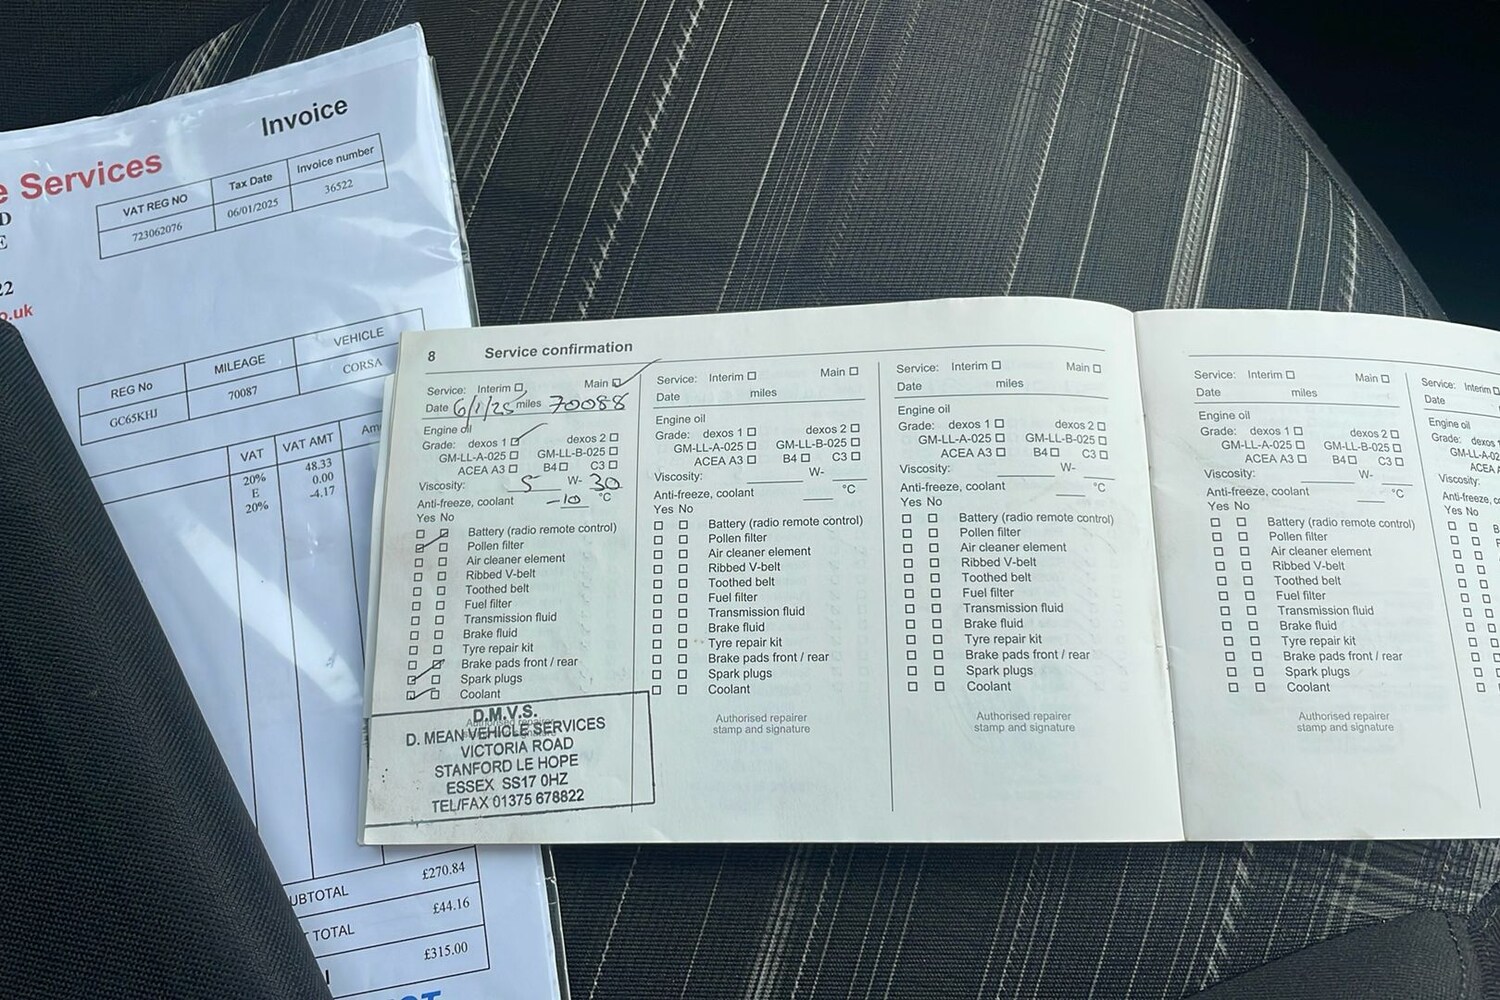 Invoice
e Services
D
E
22
o.uk
VAT REG NO Tax Date Invoice number
723062076 06/01/2025 36522
REG No MILEAGE VEHICLE
GC65KHJ 70087 CORSA
VAT VAT AMT Am
20% 48.33
E 0.00
20% -4.17
UBTOTAL £270.84
TOTAL £44.16
£315.00
8 Service confirmation
Service: Interim Main
Date 6/1/25 miles 70088
Engine oil
Grade: dexos 1 dexos 2
GM-LL-A-025 GM-LL-B-025
ACEA A3 B4 C3
Viscosity: 5 W- 30
Anti-freeze, coolant -10 °C
Yes No
Battery (radio remote control)
Pollen filter
Air cleaner element
Ribbed V-belt
Toothed belt
Fuel filter
Transmission fluid
Brake fluid
Tyre repair kit
Brake pads front / rear
Spark plugs
Coolant
Authorised repairer
stamp and signature
D.M.V.S.
D. MEAN VEHICLE SERVICES
VICTORIA ROAD
STANFORD LE HOPE
ESSEX SS17 0HZ
TEL/FAX 01375 678822
Service: Interim Main
Date miles
Engine oil
Grade: dexos 1 dexos 2
GM-LL-A-025 GM-LL-B-025
ACEA A3 B4 C3
Viscosity: W-
Anti-freeze, coolant °C
Yes No
Battery (radio remote control)
Pollen filter
Air cleaner element
Ribbed V-belt
Toothed belt
Fuel filter
Transmission fluid
Brake fluid
Tyre repair kit
Brake pads front / rear
Spark plugs
Coolant
Authorised repairer
stamp and signature
Service: Interim Main
Date miles
Engine oil
Grade: dexos 1 dexos 2
GM-LL-A-025 GM-LL-B-025
ACEA A3 B4 C3
Viscosity: W-
Anti-freeze, coolant °C
Yes No
Battery (radio remote control)
Pollen filter
Air cleaner element
Ribbed V-belt
Toothed belt
Fuel filter
Transmission fluid
Brake fluid
Tyre repair kit
Brake pads front / rear
Spark plugs
Coolant
Authorised repairer
stamp and signature
Service: Interim Main
Date miles
Engine oil
Grade: dexos 1 dexos 2
GM-LL-A-025 GM-LL-B-025
ACEA A3 B4 C3
Viscosity: W-
Anti-freeze, coolant °C
Yes No
Battery (radio remote control)
Pollen filter
Air cleaner element
Ribbed V-belt
Toothed belt
Fuel filter
Transmission fluid
Brake fluid
Tyre repair kit
Brake pads front / rear
Spark plugs
Coolant
Authorised repairer
stamp and signature
Service: Interim
Date
Engine oil
Grade: dexos
GM-LL-A-02
ACEA
Viscosity:
Anti-freeze, c
Yes No